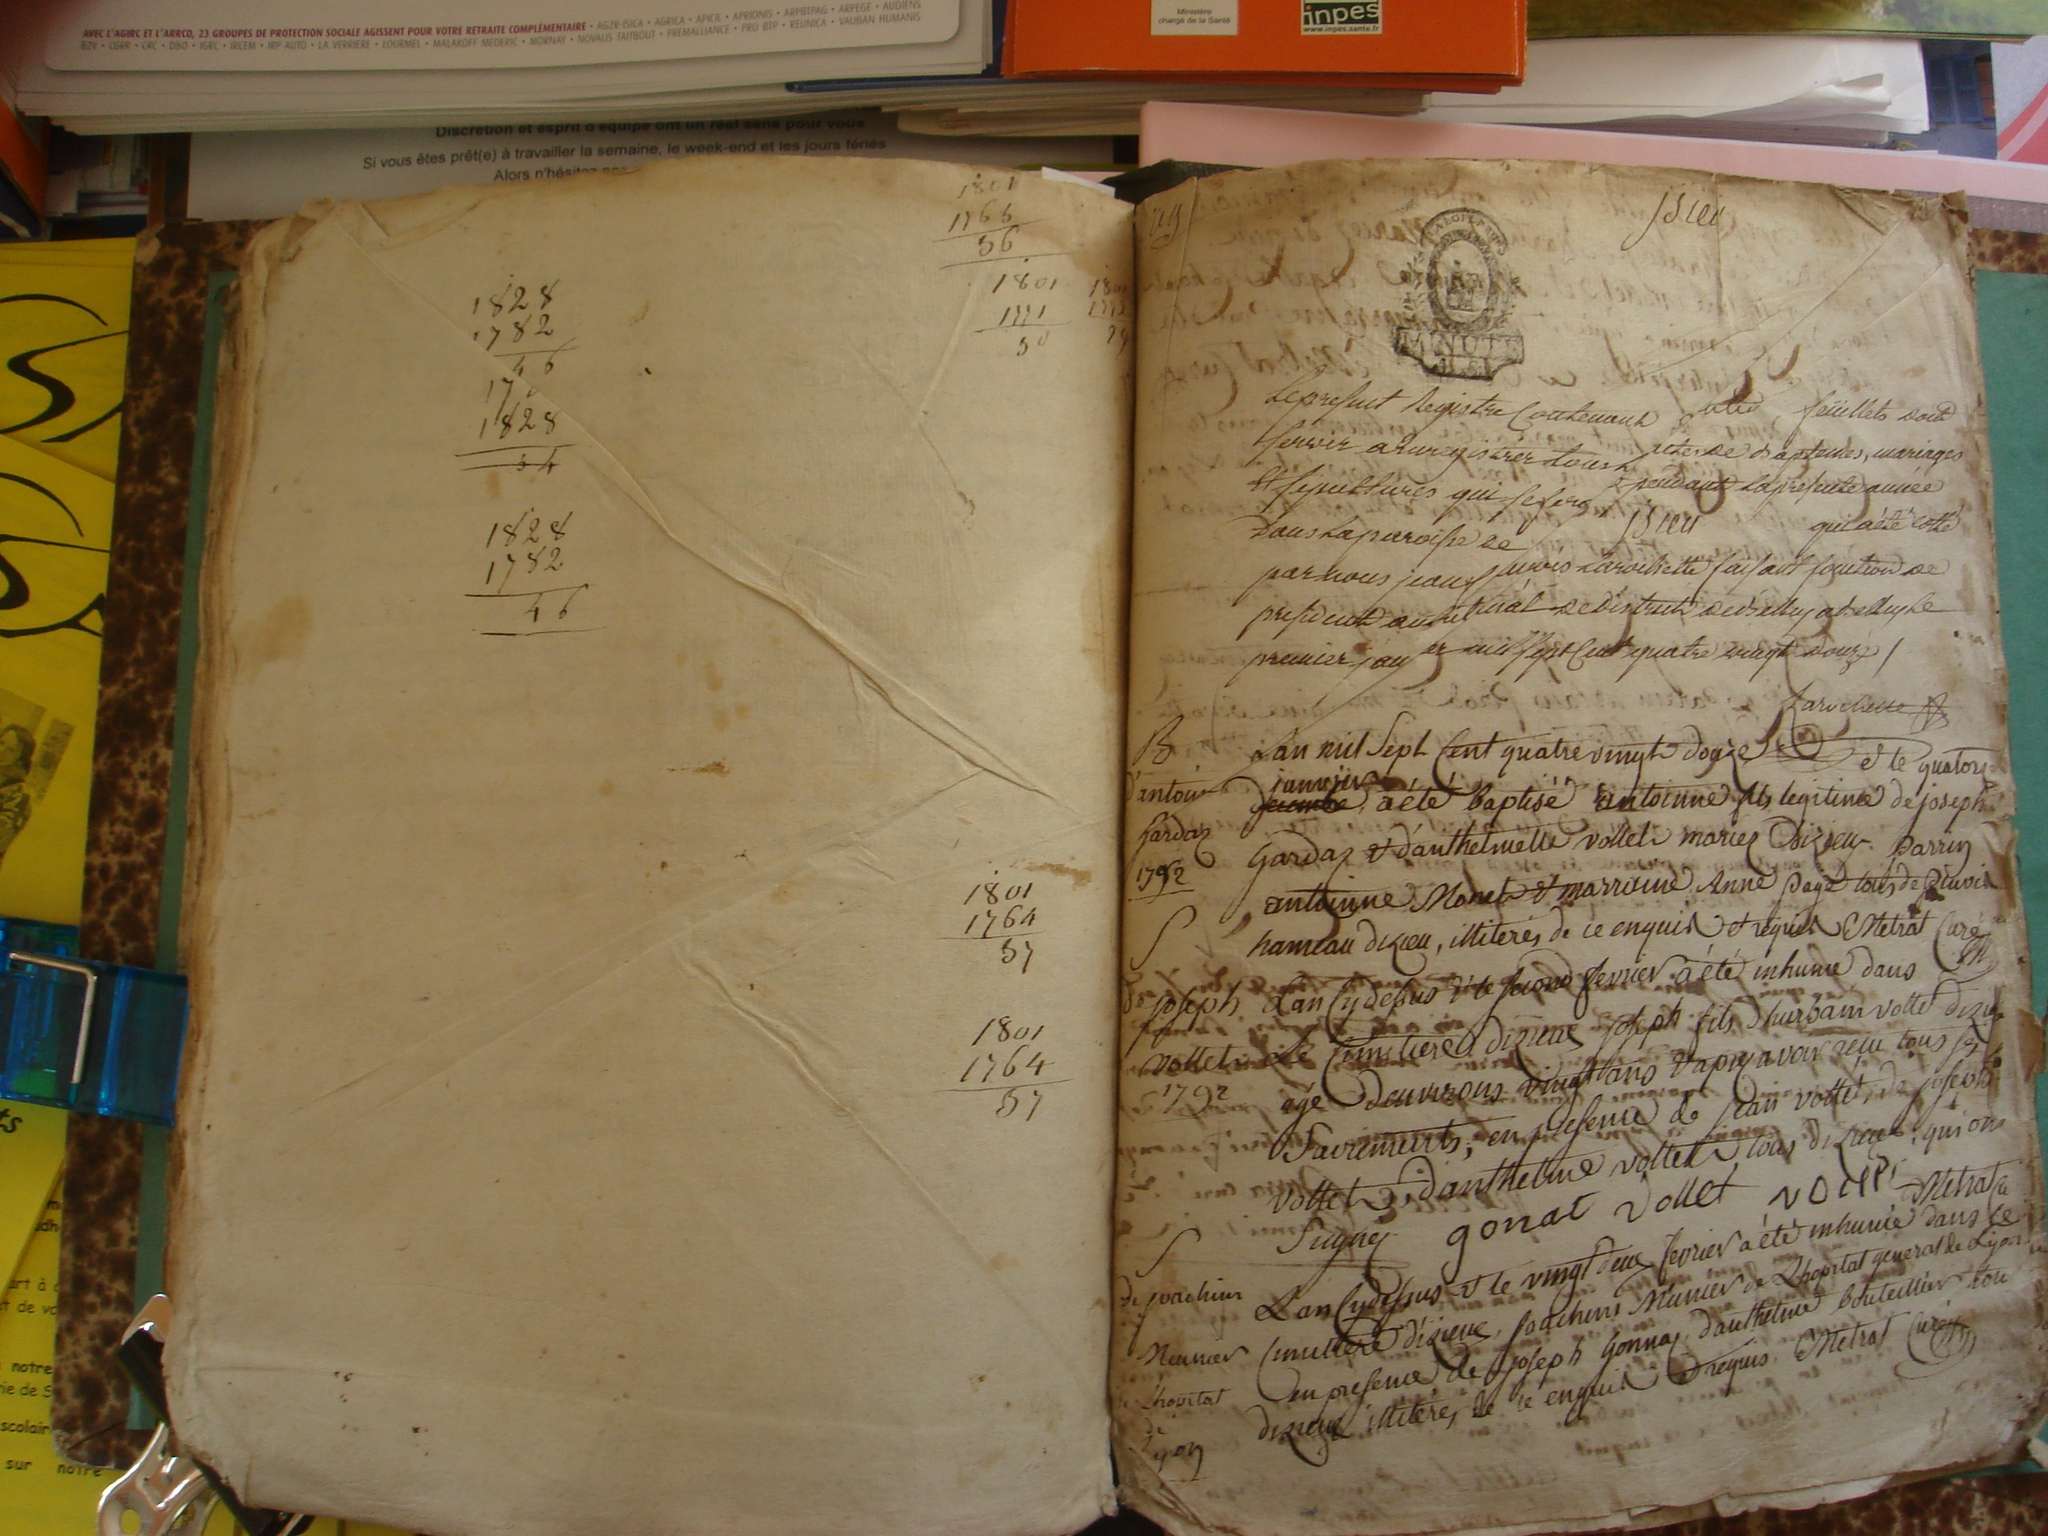 AVEC L'AGIRC ET L'ARRCO, 23 GROUPES DE PROTECTION SOCIALE AGISSENT POUR VOTRE RETRAITE COMPLÉMENTAIRE • AG2R-ISICA • AGRICA • APICIL • APRIONIS • ARPBTPAG • ARPEGE • AUDIENS
B2V • CGRR • CRC • D&O • IGRC • IRCEM • IRP AUTO • LA VERRIÈRE • LOURMEL • MALAKOFF MEDERIC • MORNAY • NOVALIS TAITBOUT • PREMALLIANCE • PRO BTP • REUNICA • VAUBAN HUMANIS
Ministère
chargé de la Santé
inpes
www.inpes.sante.fr
Discrétion et esprit d'équipe ont un réal sens pour vous
Si vous êtes prêt(e) à travailler la semaine, le week-end et les jours fériés
Alors n'hésitez
1801
1765
36
1801
1771
30
1828
1782
46
17
1828
54
1828
1782
46
1801
1764
37
1801
1764
37
jsieu
MINUTE
Le present Registre Contenant feüillets doit
servir a enregistrer tous actes de Baptemes, mariages
et sepultures qui se feront pendant la presente année
dans la paroisse de jsieu qui a été cotté
par nous jean Larochette faisant fonction de
president au tribunal de district de belley a belley le
premier janvier mil sept Cent quatre vingt douze /
Larochette
B
d'antoine
Gardaz
1792
L'an mil Sept Cent quatre vingt douze et le quatorze
janvier
decembre, a été baptisé antoinne fils legitime de joseph
Gardaz et d'anthelmette vollet mariés d'izieu. Parrin
antoinne Monet et marraine Anne Page tous de
hameau dizieu, illiterés de ce enquis et requis Metrat Curé
S
de joseph
vollet
1792
L'an Cydessus et le second fevrier a été inhumé dans
le Cimitiere dizieu joseph fils d'hurbain vollet dizieu
agé d'environs vingt ans et apres avoir reçu tous se
Sacrements, en presence de jean vollet, de joseph
vollet, d'anthelme vollet tous dizieu, qui ont
Signés gonat vollet Metrat
S
de joachim
Meunier
L'hopital
de
Lyon
L'an Cydessus et le vingt deux fevrier a été inhumé dans le
Cimitiere d'izieu, joachim Munier de L'hopital general de Lyon
en presence de joseph Gonnaz, d'anthelme bouteillier tou
dizieu illiterés de ce enquis et requis Metrat Curé
scolair
sur notre